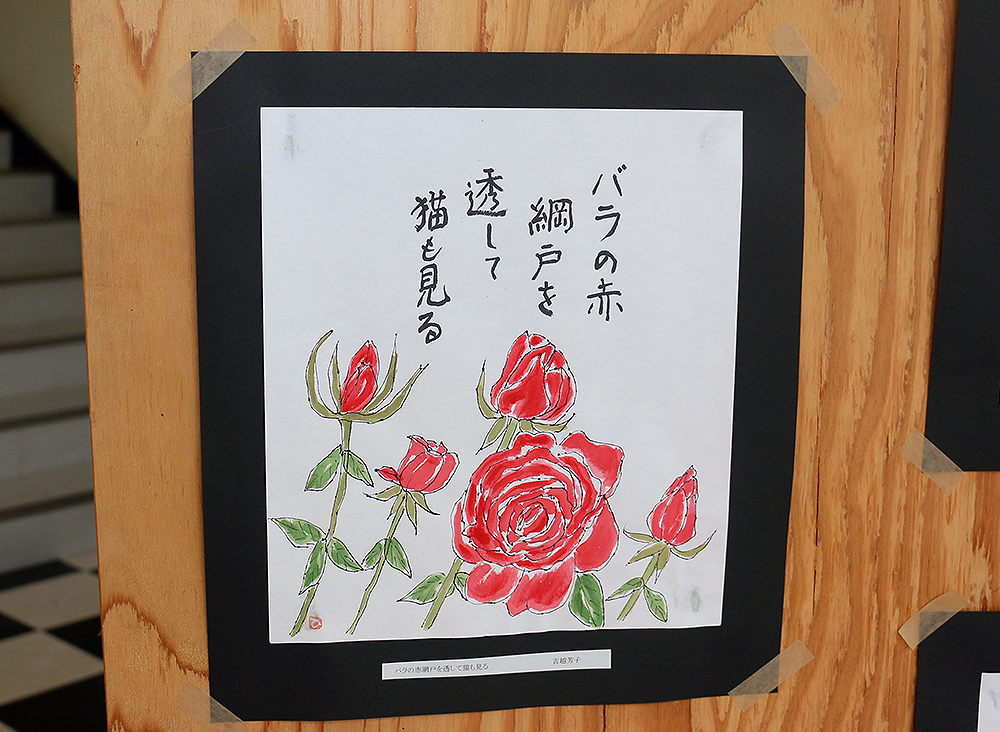 バラの赤
網戸を
透して
猫も見る
バラの赤網戸を透して猫も見る 吉越芳子